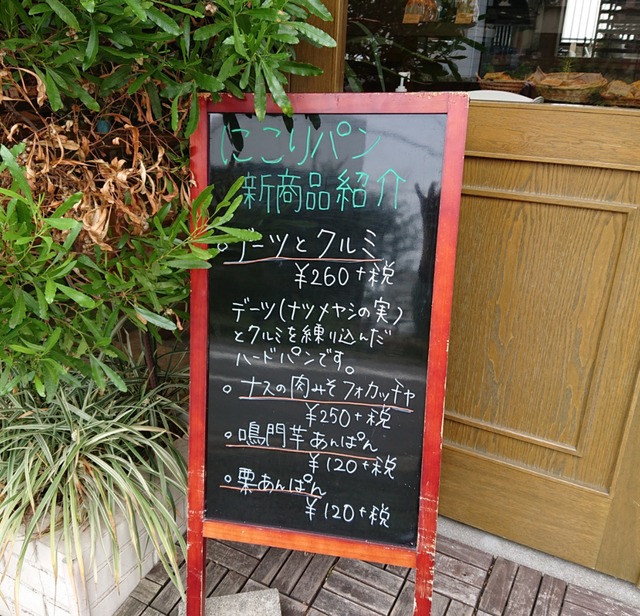 にこりパン
新商品紹介
。デーツとクルミ
¥260+税
デーツ(ナツメヤシの実)
とクルミを練り込んだ
ハードパンです。
。ナスの肉みそフォカッチャ
¥250+税
。鳴門芋あんぱん
¥120+税
。栗あんぱん
¥120+税